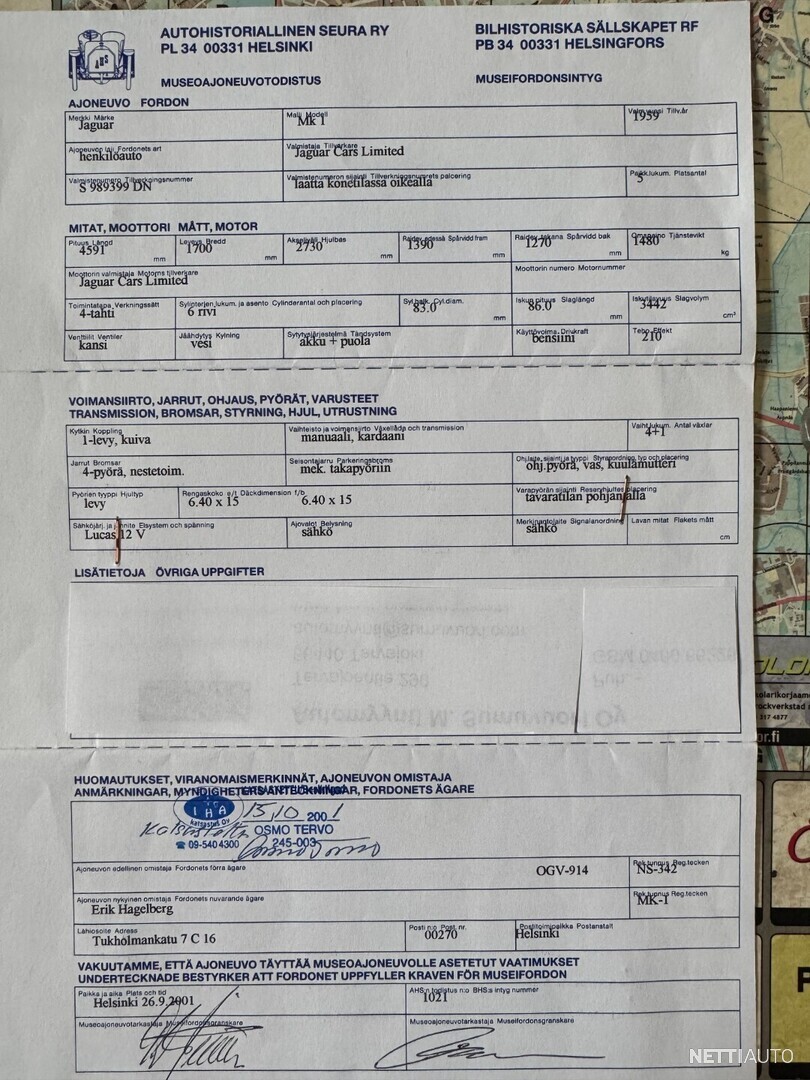 AUTOHISTORIALLINEN SEURA RY
PL 34 00331 HELSINKI
BILHISTORISKA SÄLLSKAPET RF
PB 34 00331 HELSINGFORS
AHS
MUSEOAJONEUVOTODISTUS
MUSEIFORDONSINTYG
AJONEUVO FORDON
Merkki Märke
Jaguar
Malli Modell
Mk 1
Tillv.år
1959
Ajoneuvon laji Fordonets art
henkilöauto
Valmistaja Tillverkare
Jaguar Cars Limited
Valmistenumero Tillverkningsnummer
S 989399 DN
Valmistenumeron sijainti Tillverkningsnumrets palcering
laatta konetilassa oikealla
Paikk.lukum. Platsantal
5
MITAT, MOOTTORI MÅTT, MOTOR
Pituus Längd
4591
mm
Leveys Bredd
1700
mm
Akseliväli Hjulbas
2730
mm
Raidev. edessä Spårvidd fram
1390
mm
Raidev. takana Spårvidd bak
1270
mm
Omapaino Tjänstevikt
1480
kg
Moottorin valmistaja Motorns tillverkare
Jaguar Cars Limited
Moottorin numero Motornummer
Toimintatapa Verkningssätt
4-tahti
Sylinterien lukum. ja asento Cylinderantal och placering
6 rivi
Syl.halk. Cyl.diam.
83.0
mm
Iskun pituus Slaglängd
86.0
mm
Iskutilavuus Slagvolym
3442
cm³
Venttiilit Ventiler
kansi
Jäähdytys Kylning
vesi
Sytytysjärjestelmä Tändsystem
akku + puola
Käyttövoima Drivkraft
bensiini
Teho Effekt
210
VOIMANSIIRTO, JARRUT, OHJAUS, PYÖRÄT, VARUSTEET
TRANSMISSION, BROMSAR, STYRNING, HJUL, UTRUSTNING
Kytkin Koppling
1-levy, kuiva
Vaihteisto ja voimansiirto Växellåda och transmission
manuaali, kardaani
Vaiht.lukum. Antal växlar
4+1
Jarrut Bromsar
4-pyörä, nestetoim.
Seisontajarru Parkeringsbroms
mek. takapyöriin
Ohj.laite, sijainti ja tyyppi Styranordning, typ och placering
ohj.pyörä, vas, kuulamutteri
Pyörien tyyppi Hjultyp
levy
Rengaskoko e/t Däckdimension f/b
6.40 x 15 6.40 x 15
Varapyörän sijainti Reservhjulets placering
tavaratilan pohjan alla
Sähköjärj. ja jännite Elsystem och spänning
Lucas 12 V
Ajovalot Belysning
sähkö
Merkinantolaite Signalanordning
sähkö
Lavan mitat Flakets mått
cm
LISÄTIETOJA ÖVRIGA UPPGIFTER
HUOMAUTUKSET, VIRANOMAISMERKINNÄT, AJONEUVON OMISTAJA
ANMÄRKNINGAR, MYNDIGHETERS ANTECKNINGAR, FORDONETS ÄGARE
IHA
katsastus Oy
15.10 2001
Katsastettu
OSMO TERVO
☎ 09-540 4300
245-003
Ajoneuvon edellinen omistaja Fordonets förra ägare
OGV-914
Rek.tunnus Reg.tecken
NS-342
Ajoneuvon nykyinen omistaja Fordonets nuvarande ägare
Erik Hagelberg
Rek.tunnus Reg.tecken
MK-1
Lähiosoite Adress
Tukholmankatu 7 C 16
Posti n:o Post. nr.
00270
Postitoimipaikka Postanstalt
Helsinki
VAKUUTAMME, ETTÄ AJONEUVO TÄYTTÄÄ MUSEOAJONEUVOLLE ASETETUT VAATIMUKSET
UNDERTECKNADE BESTYRKER ATT FORDONET UPPFYLLER KRAVEN FÖR MUSEIFORDON
Paikka ja aika Plats och tid
Helsinki 26.9.2001
AHS:n todistus n:o BHS:s intyg nummer
1021
Museoajoneuvotarkastaja Museifordonsgranskare
Museoajoneuvotarkastaja Museifordonsgranskare
NETTIAUTO